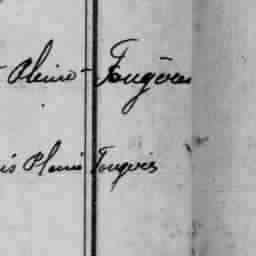 Pleine-Fougères
is Pleine Fougeres